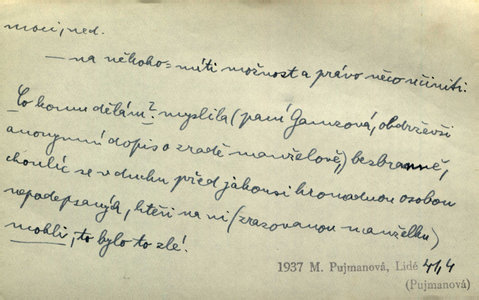 moci, ned.
— na někoho = míti možnost a právo něco učiniti:
Co komu dělám? myslila (paní Gamzová, obdrževši
anonymní dopis o zradě manželově,) bezbranně,
choulíc se v duchu před jakousi hromadnou osobou
nepodepsaných, kteří na ni (zrazovanou manželku)
mohli, to bylo to zlé!
1937 M. Pujmanová, Lidé 41,4
(Pujmanová)